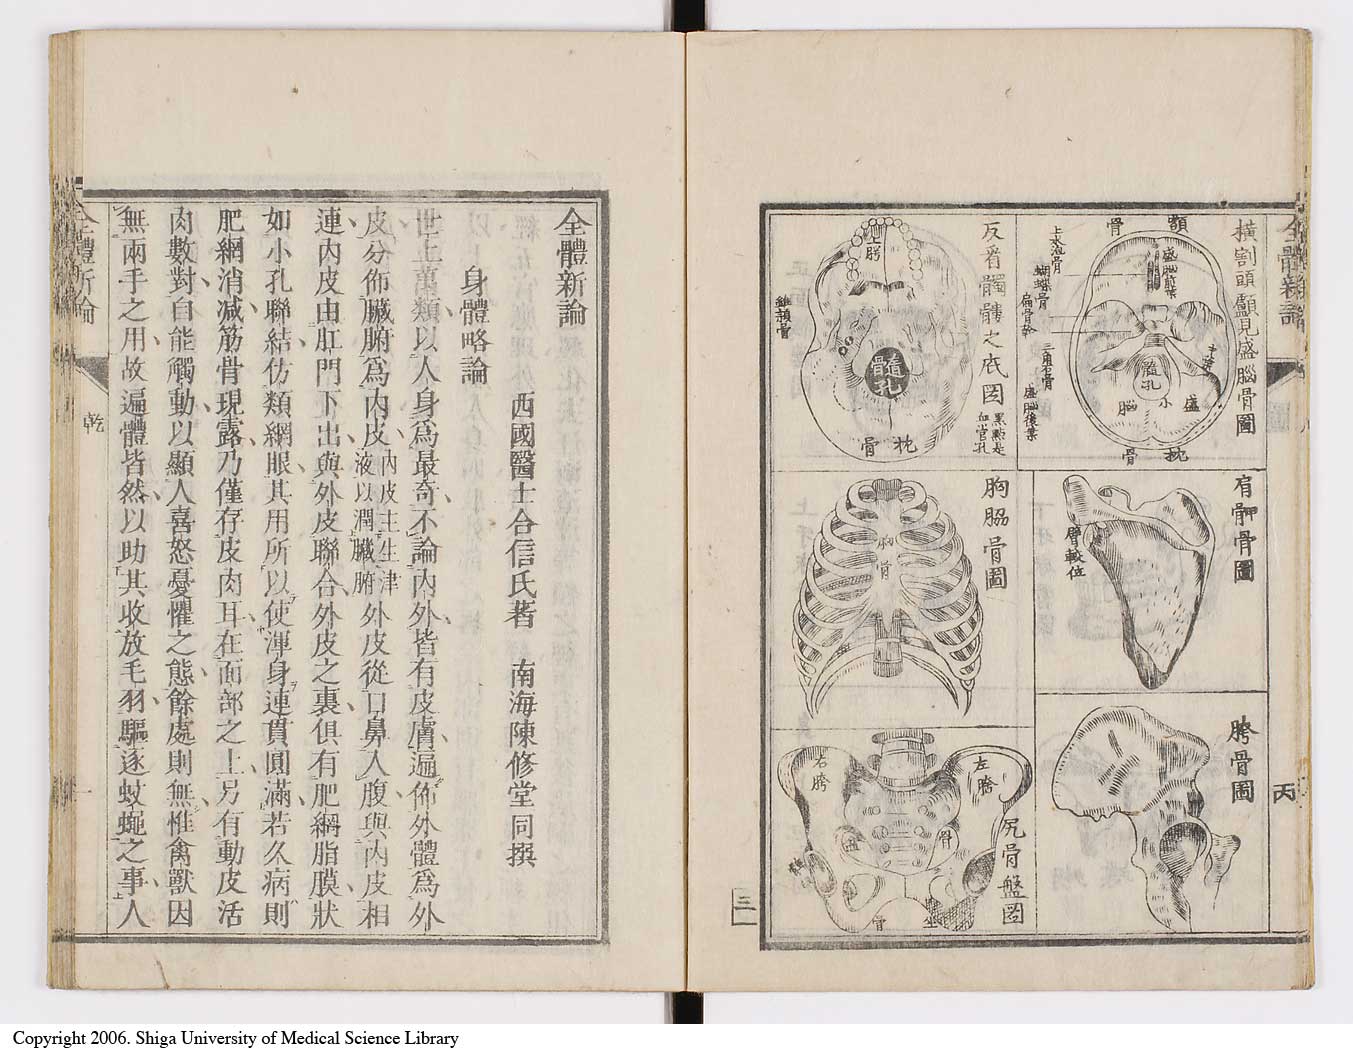 全體新論
丙
橫割頭顱見盛腦骨圖
額
骨
盛腦前葉
上水泡骨
蝴蝶骨
扁骨幹
三角石骨
盛腦後葉
髓孔
盛
小
腦
枕
骨
反看髑髏之底圖
黑點是血管孔
上腭
錐類骨
髓孔
骨
枕
骨
肩胛骨圖
臂骹位
胸脇骨圖
胸骨
胯骨圖
尻骨盤圖
左胯
右胯
骨
盆
坐
骨
三
全體新論
西國醫士合信氏著　南海陳修堂同撰
身體略論
世上萬類以人身爲最奇不論內外皆有皮膚遍佈外體爲外
皮分佈臟腑爲內皮內皮主生津液以潤臟腑外皮從口鼻入腹與內皮相
連內皮由肛門下出與外皮聯合外皮之裏俱有肥網脂膜狀
如小孔聯結仿類網眼其用所以使渾身連貫圓滿若久病則
肥網消減筋骨現露乃僅存皮肉耳在面部之上另有動皮活
肉數對自能觸動以顯人喜怒憂懼之態餘處則無惟禽獸因
無兩手之用故遍體皆然以助其收放毛羽驅逐蚊蠅之事人
全體新論
乾
一
Copyright 2006. Shiga University of Medical Science Library